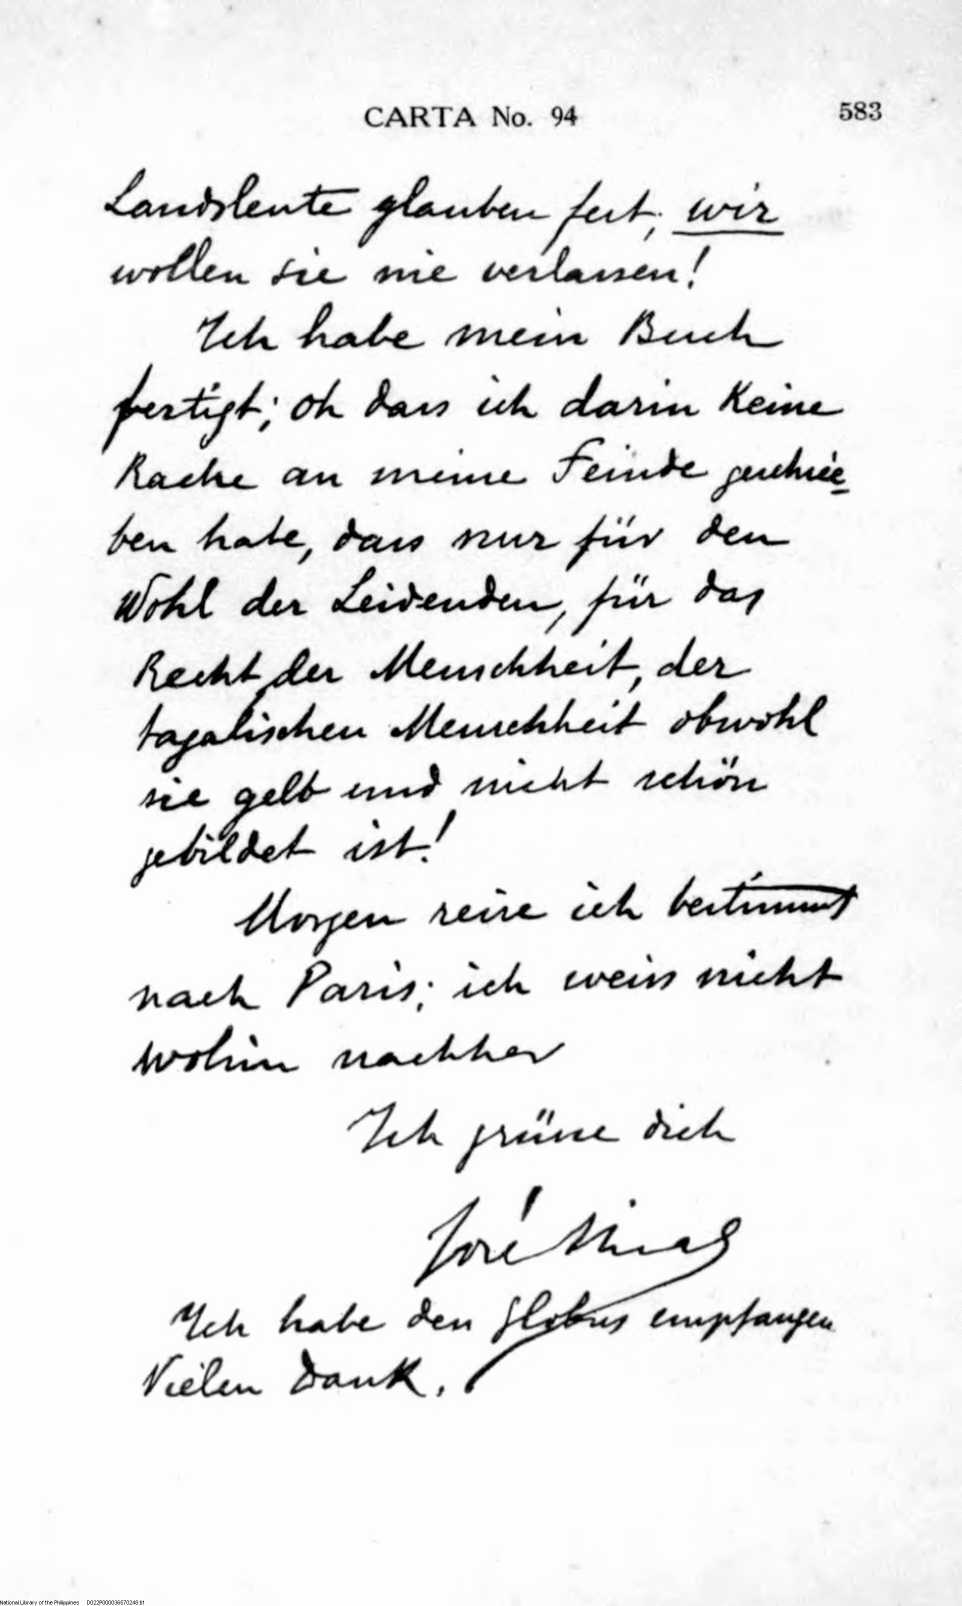 CARTA No. 94 583
Landsleute glauben fest, wir
wollen sie nie verlassen!
Ich habe mein Buch
fertigt; oh dass ich darin Keine
Rache an meine Feinde geschrie-
ben habe, dass nur für den
Wohl der Leidenden, für das
Recht der Menschheit, der
tagalischen Menschheit obwohl
sie gelb und nicht schön
gebildet ist!
Morgen reise ich bestimmt
nach Paris; ich weiss nicht
wohin nachher
Ich grüsse dich
José Rizal
Ich habe den Globus empfangen
Vielen Dank.
National Library of the Philippines